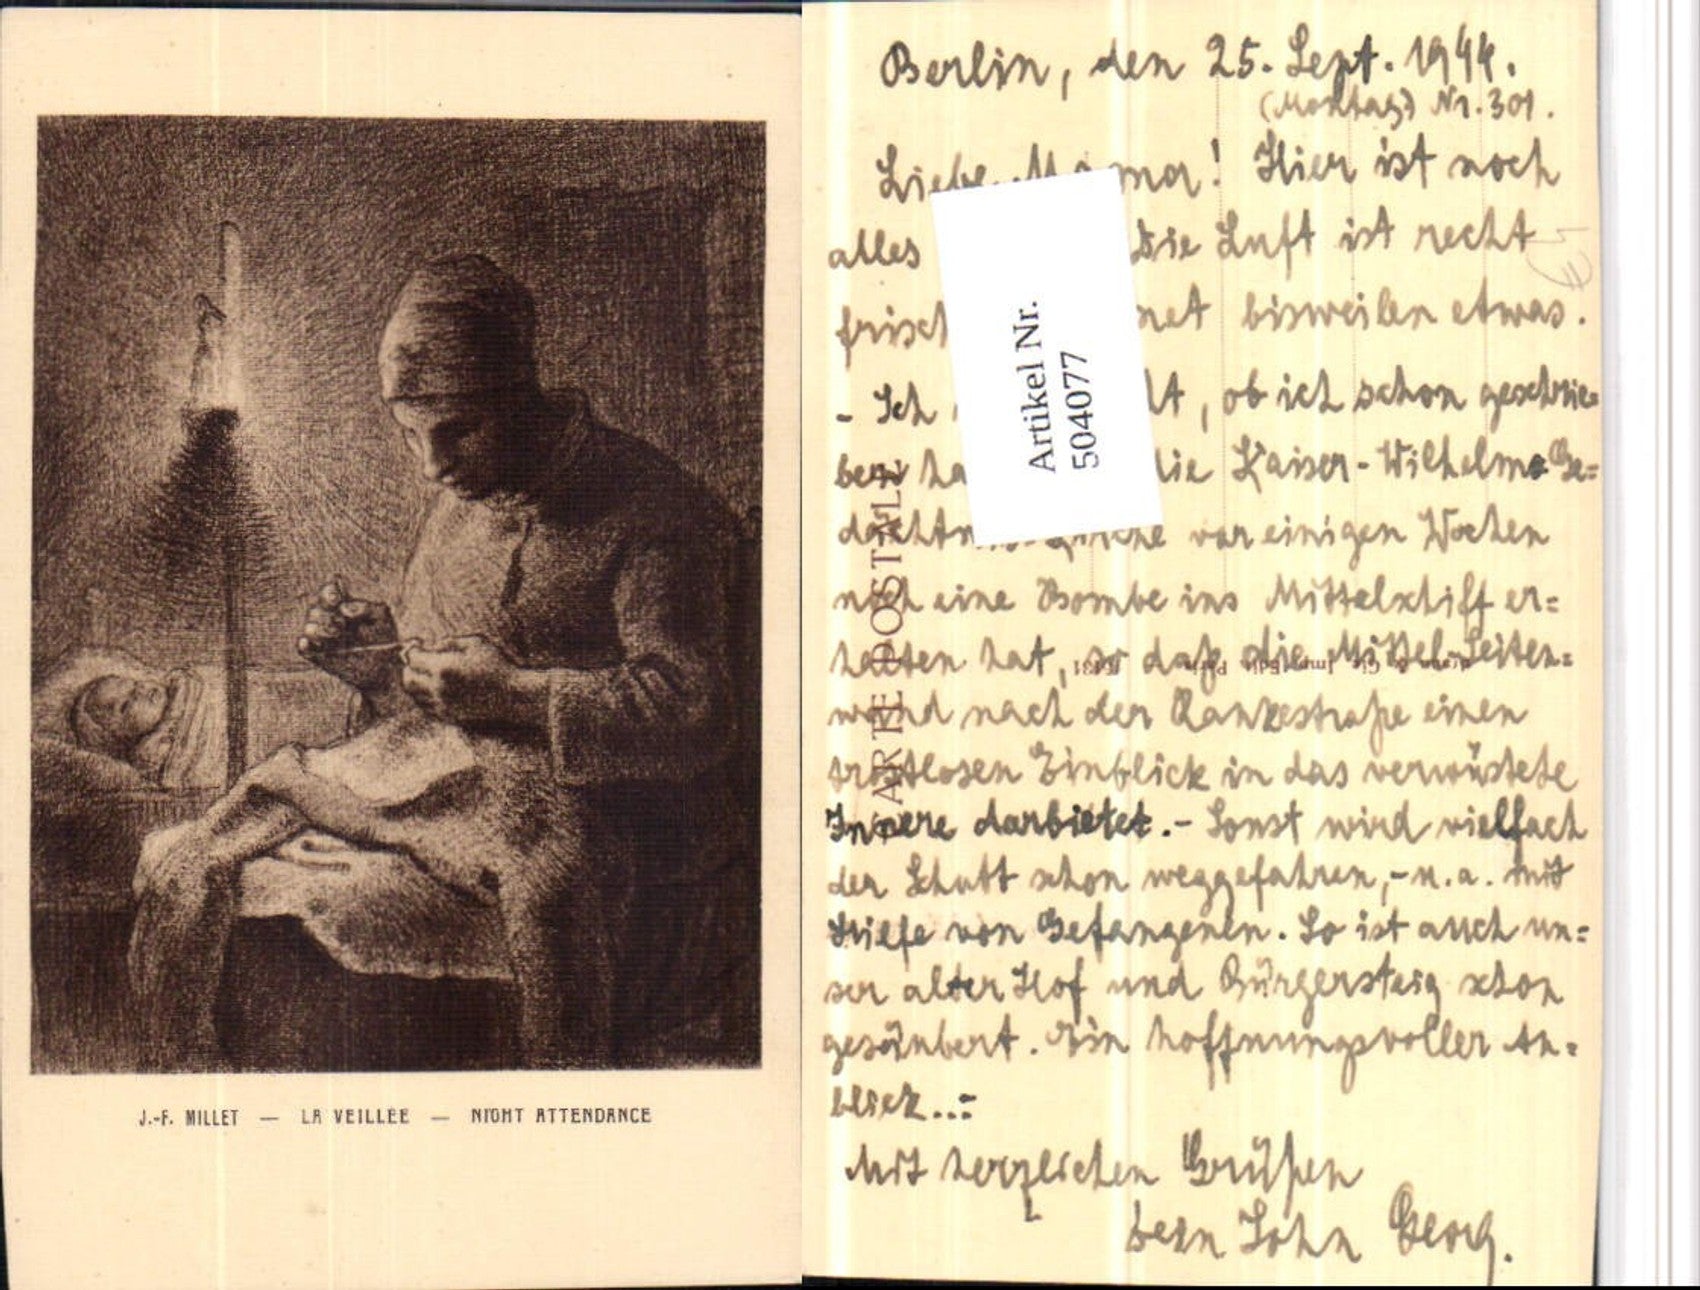 J.-F. MILLET — LA VEILLÉE — NIGHT ATTENDANCE
Berlin, den 25. Sept. 1944.
(Montag) Nr. 301.
Liebe Mama! Hier ist noch
alles die Luft ist recht
frisch bisweilen etwas.
- Ich , ob ich schon geschrie=
ben die Kaiser-Wilhelm-Ge=
dächtnis-Kirche vor einigen Wochen
noch eine Bombe ins Mittelschiff er=
halten hat, so daß die Mittel-Seiten=
wand nach der Rankestraße einen
trostlosen Einblick in das verwüstete
Innere darbietet.- Sonst wird vielfach
der Schutt schon weggefahren,- u.a. mit
Hilfe von Gefangenen. So ist auch un=
ser alter Hof und Bürgersteig schon
gesäubert. Ein hoffnungsvoller An=
blick..-
Mit herzlichen Grüßen
Dein Sohn Georg.
Artikel Nr.
504077
CARTE POSTALE